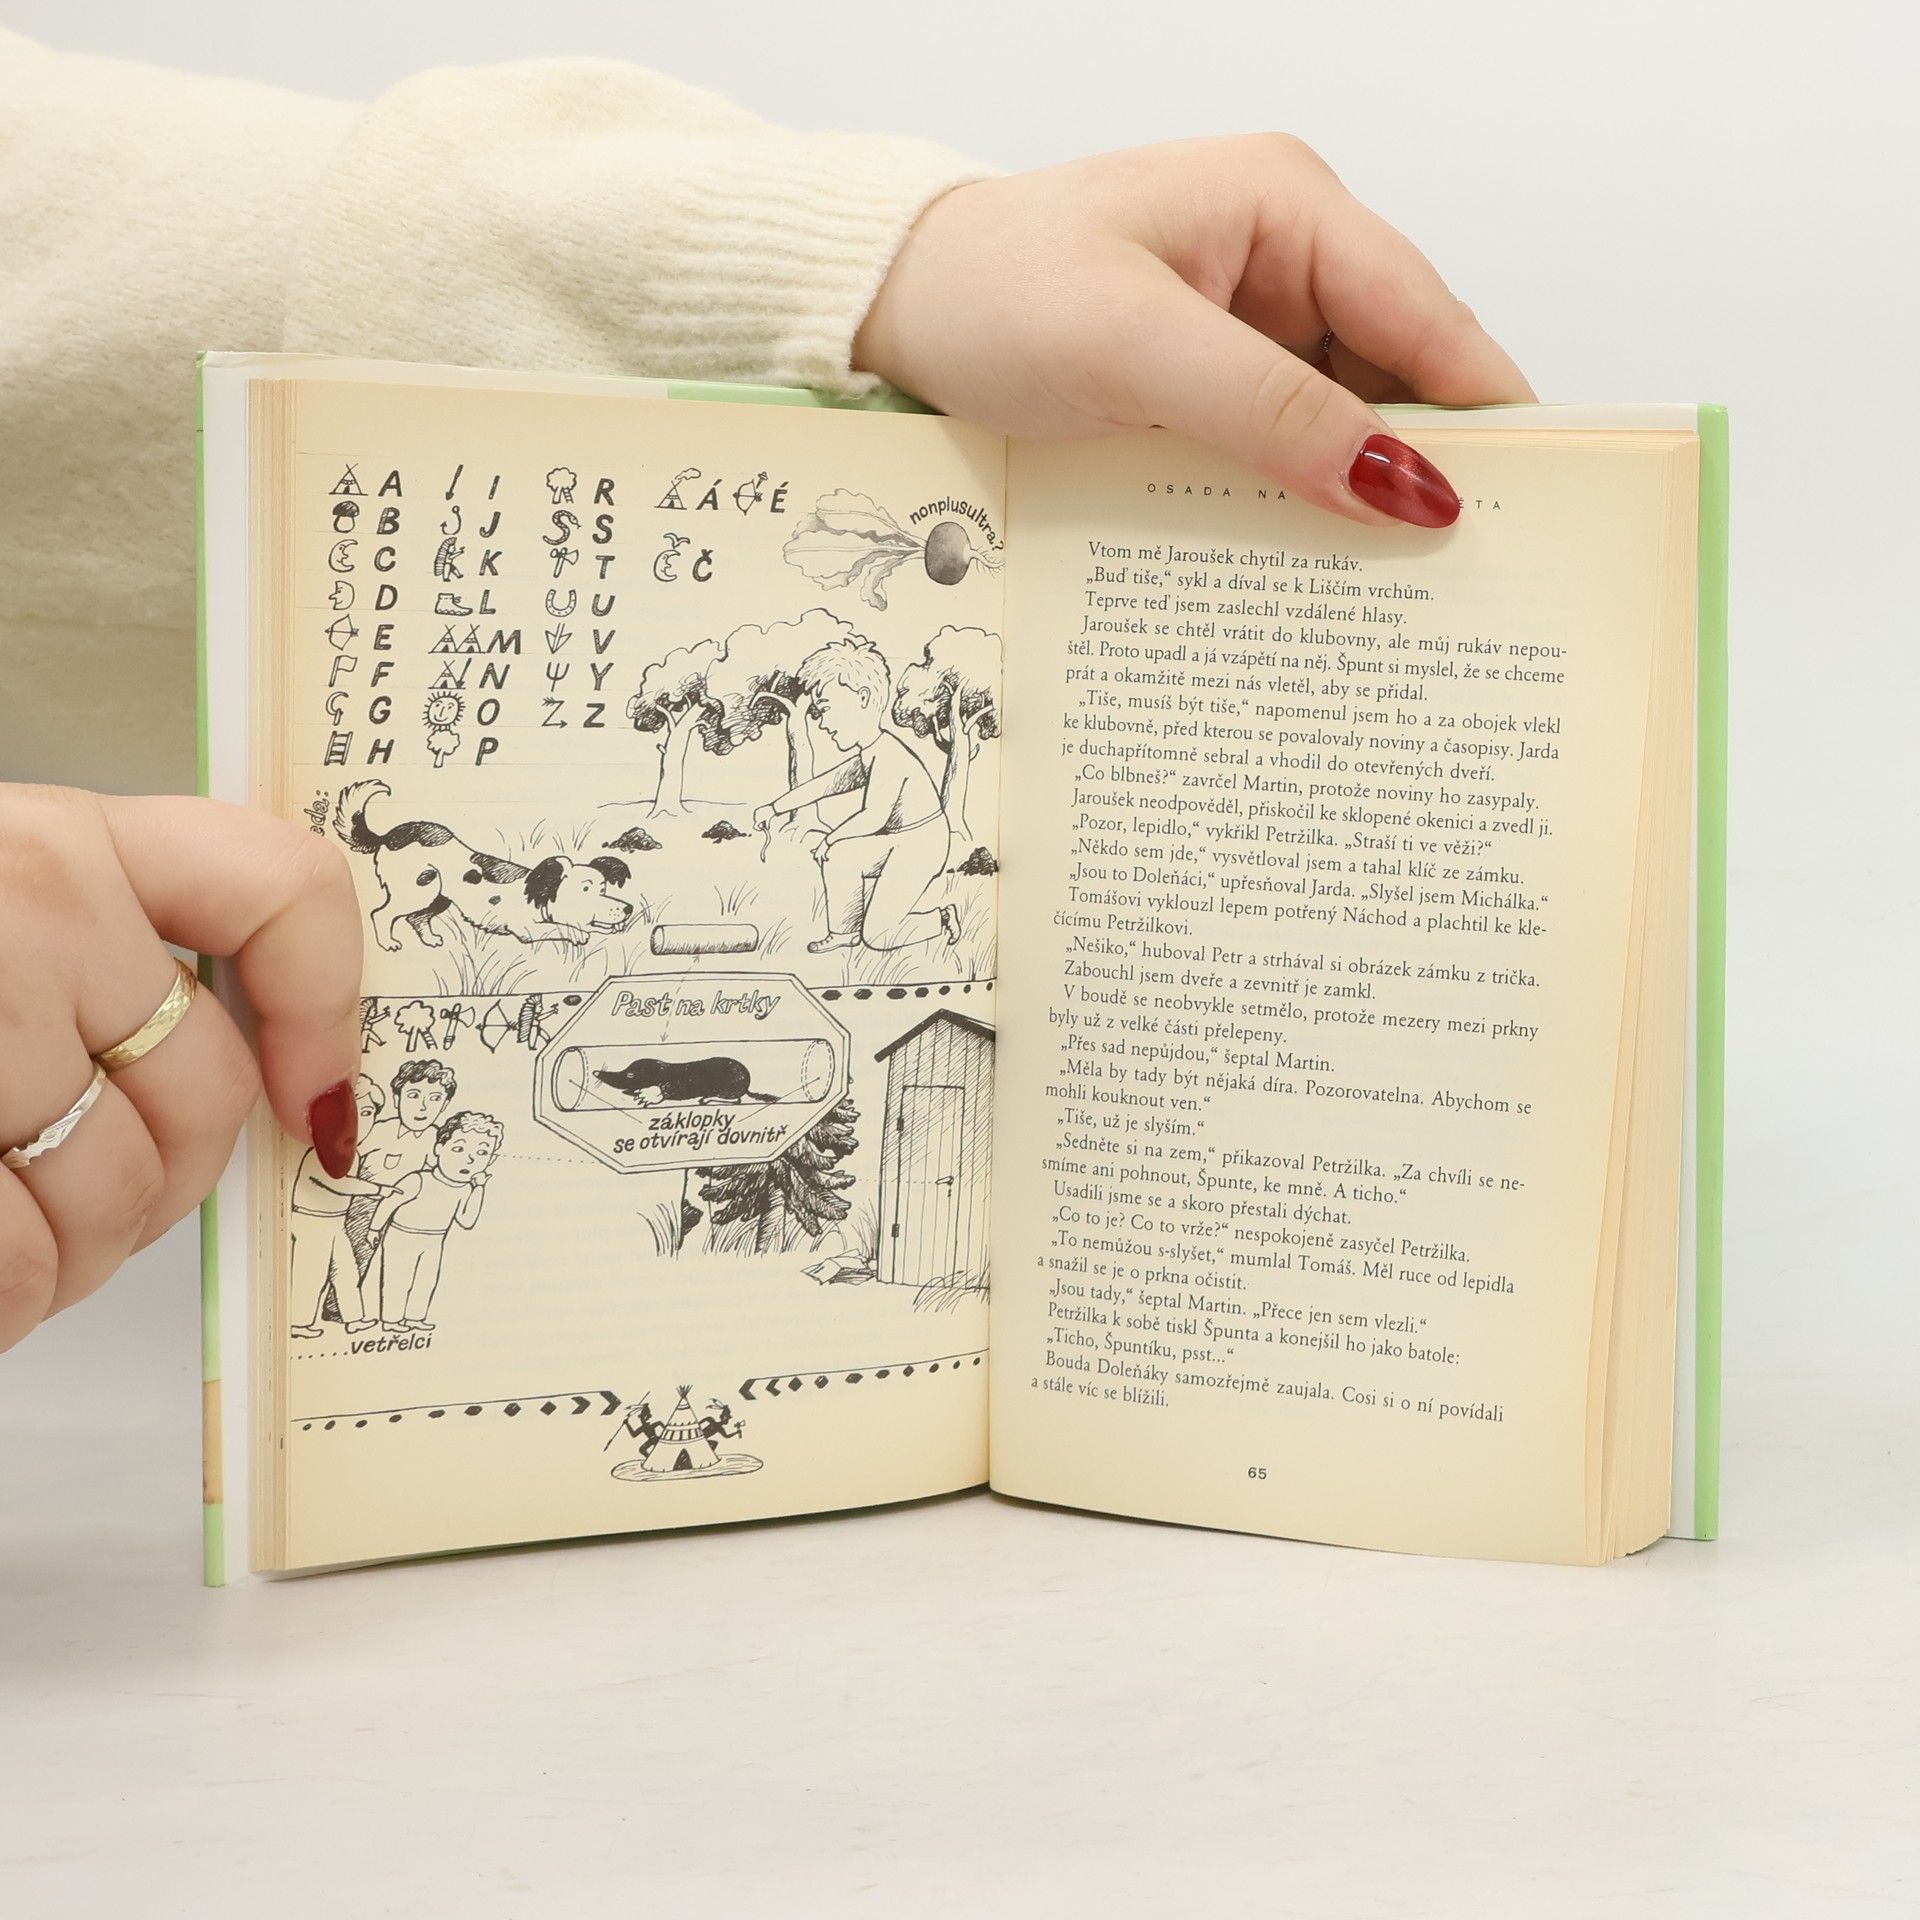 A I R Á É
B J S
C K T Č
D L U
E M V
F N Y
G O Z
H P
nonplusultra?
Past na krtky
záklopky
se otvírají dovnitř
......vetřelci
OSADA NA
Vtom mě Jaroušek chytil za rukáv.
„Buď tiše,“ sykl a díval se k Liščím vrchům.
Teprve teď jsem zaslechl vzdálené hlasy.
Jaroušek se chtěl vrátit do klubovny, ale můj rukáv nepou-
štěl. Proto upadl a já vzápětí na něj. Špunt si myslel, že se chceme
prát a okamžitě mezi nás vletěl, aby se přidal.
„Tiše, musíš být tiše,“ napomenul jsem ho a za obojek vlekl
ke klubovně, před kterou se povalovaly noviny a časopisy. Jarda
je duchapřítomně sebral a vhodil do otevřených dveří.
„Co blbneš?“ zavrčel Martin, protože noviny ho zasypaly.
Jaroušek neodpověděl, přiskočil ke sklopené okenici a zvedl ji.
„Pozor, lepidlo,“ vykřikl Petržilka. „Straší ti ve věži?“
„Někdo sem jde,“ vysvětloval jsem a tahal klíč ze zámku.
„Jsou to Doleňáci,“ upřesňoval Jarda. „Slyšel jsem Michálka.“
Tomášovi vyklouzl lepem potřený Náchod a plachtil ke kle-
čícímu Petržilkovi.
„Nešiko,“ huboval Petr a strhával si obrázek zámku z trička.
Zabouchl jsem dveře a zevnitř je zamkl.
V boudě se neobvykle setmělo, protože mezery mezi prkny
byly už z velké části přelepeny.
„Přes sad nepůjdou,“ šeptal Martin.
„Měla by tady být nějaká díra. Pozorovatelna. Abychom se
mohli kouknout ven.“
„Tiše, už je slyším.“
„Sedněte si na zem,“ přikazoval Petržilka. „Za chvíli se ne-
smíme ani pohnout, Špunte, ke mně. A ticho.“
Usadili jsme se a skoro přestali dýchat.
„Co to je? Co to vrže?“ nespokojeně zasyčel Petržilka.
„To nemůžou s-slyšet,“ mumlal Tomáš. Měl ruce od lepidla
a snažil se je o prkna očistit.
„Jsou tady,“ šeptal Martin. „Přece jen sem vlezli.“
Petržilka k sobě tiskl Špunta a konejšil ho jako batole:
„Ticho, Špuntíku, psst...“
Bouda Doleňáky samozřejmě zaujala. Cosi si o ní povídali
a stále víc se blížili.
65